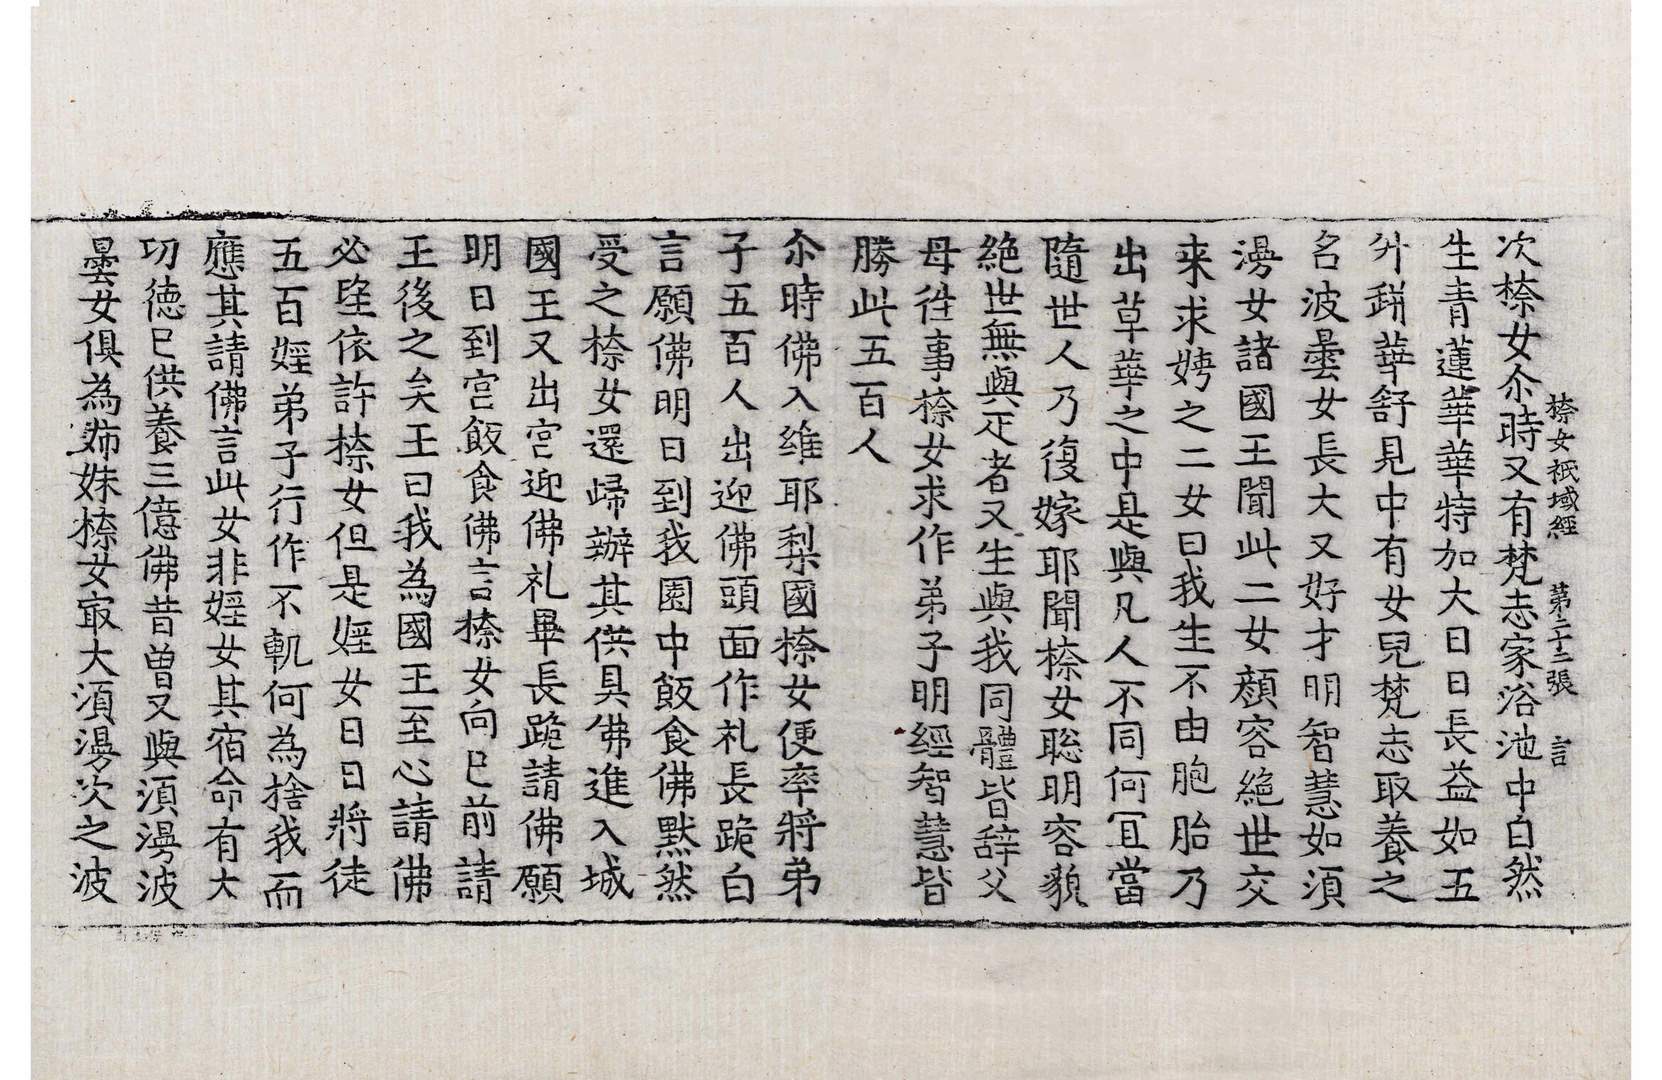 㮈女祇域經 第二十二張 言
次㮈女尒時又有梵志家浴池中自然
生青蓮華華特加大日日長益如五
升缾華舒見中有女兒梵志取養之
名波曇女長大又好才明智慧如須
漫女諸國王聞此二女顔容絶世交
来求娉之二女曰我生不由胞胎乃
出草華之中是與凡人不同何冝當
隨世人乃復嫁耶聞㮈女聡明容䫉
絶世無與疋者又生與我同體皆辞父
母徃事㮈女求作弟子明經智慧皆
勝此五百人
尒時佛入維耶梨國㮈女便率將弟
子五百人出迎佛頭面作礼長跪白
言願佛明日到我園中飯食佛黙然
受之㮈女還歸辦其供具佛進入城
國王又出宫迎佛礼畢長跪請佛願
明日到宫飯食佛言㮈女向已前請
王後之矣王曰我為國王至心請佛
必望依許㮈女但是婬女日日將徒
五百婬弟子行作不軌何為捨我而
應其請佛言此女非婬女其宿命有大
功德已供養三億佛昔曽又與須漫波
曇女俱為姉妹㮈女冣大須漫次之波